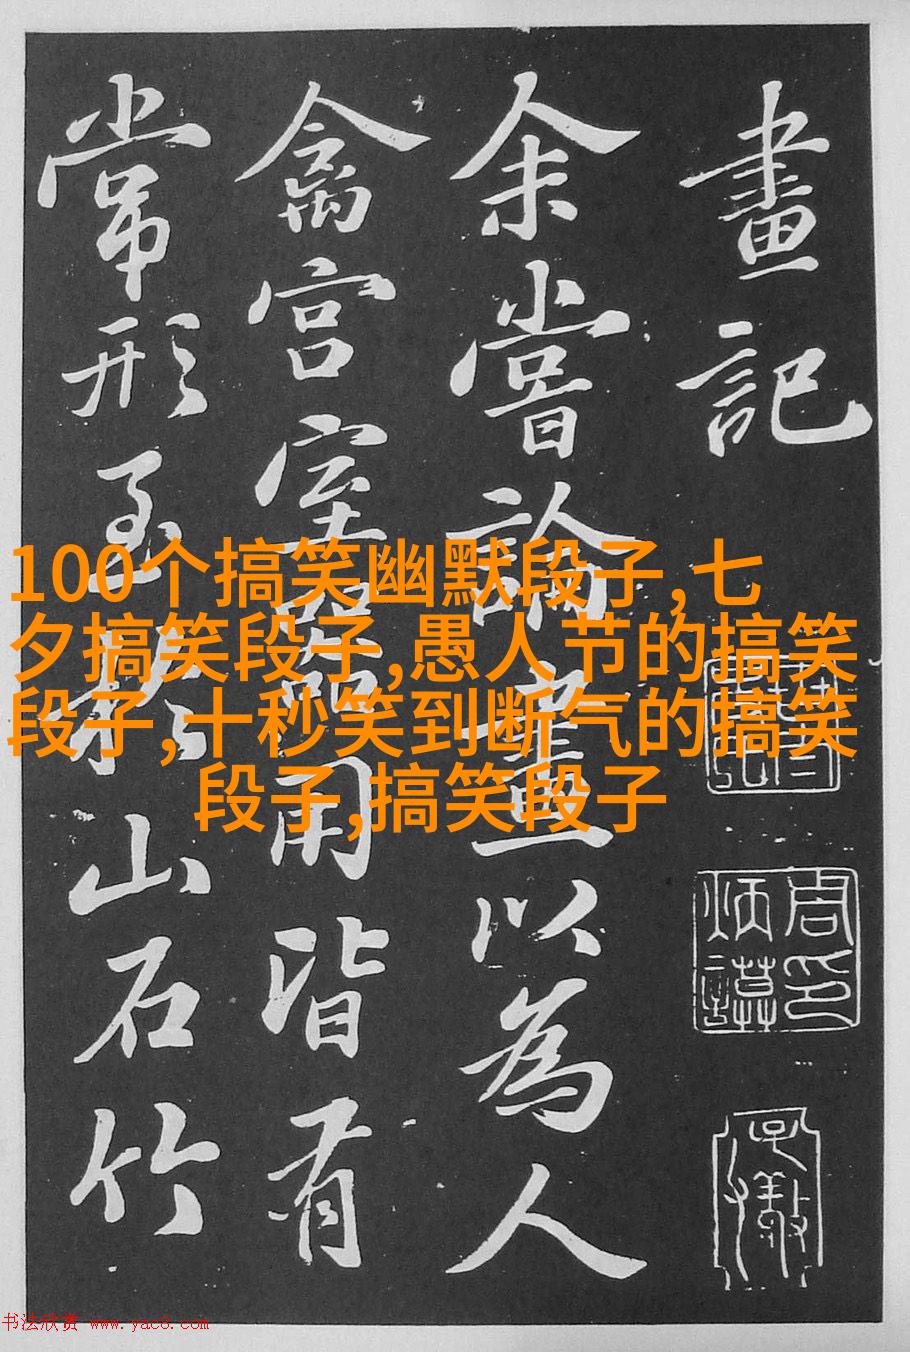 畫記
余嘗論畫以為人
禽宮室器用皆有
常形至於山石竹
100个搞笑幽默段子,七
夕搞笑段子,愚人节的搞笑
段子,十秒笑到断气的搞笑
段子,搞笑段子
书法欣赏 www.yac8.com